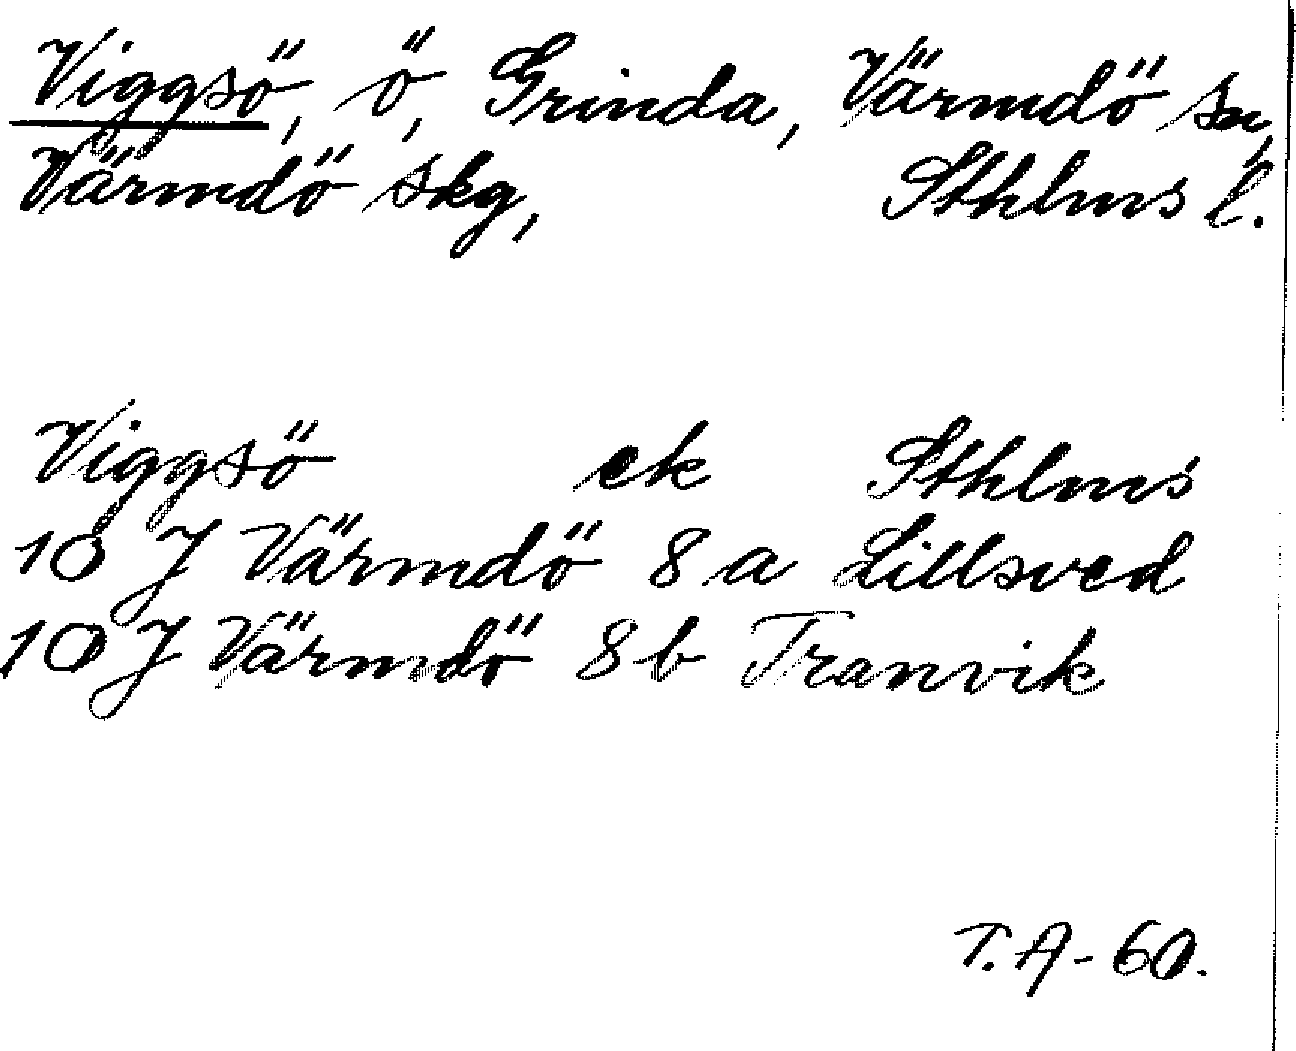 Viggsö, ö, Grinda, Värmdö sn,
Värmdö skg, Sthlms l.
Viggsö ek Sthlms
10 J Värmdö 8 a Lillsved
10 J Värmdö 8 b Tranvik
T.A-60.